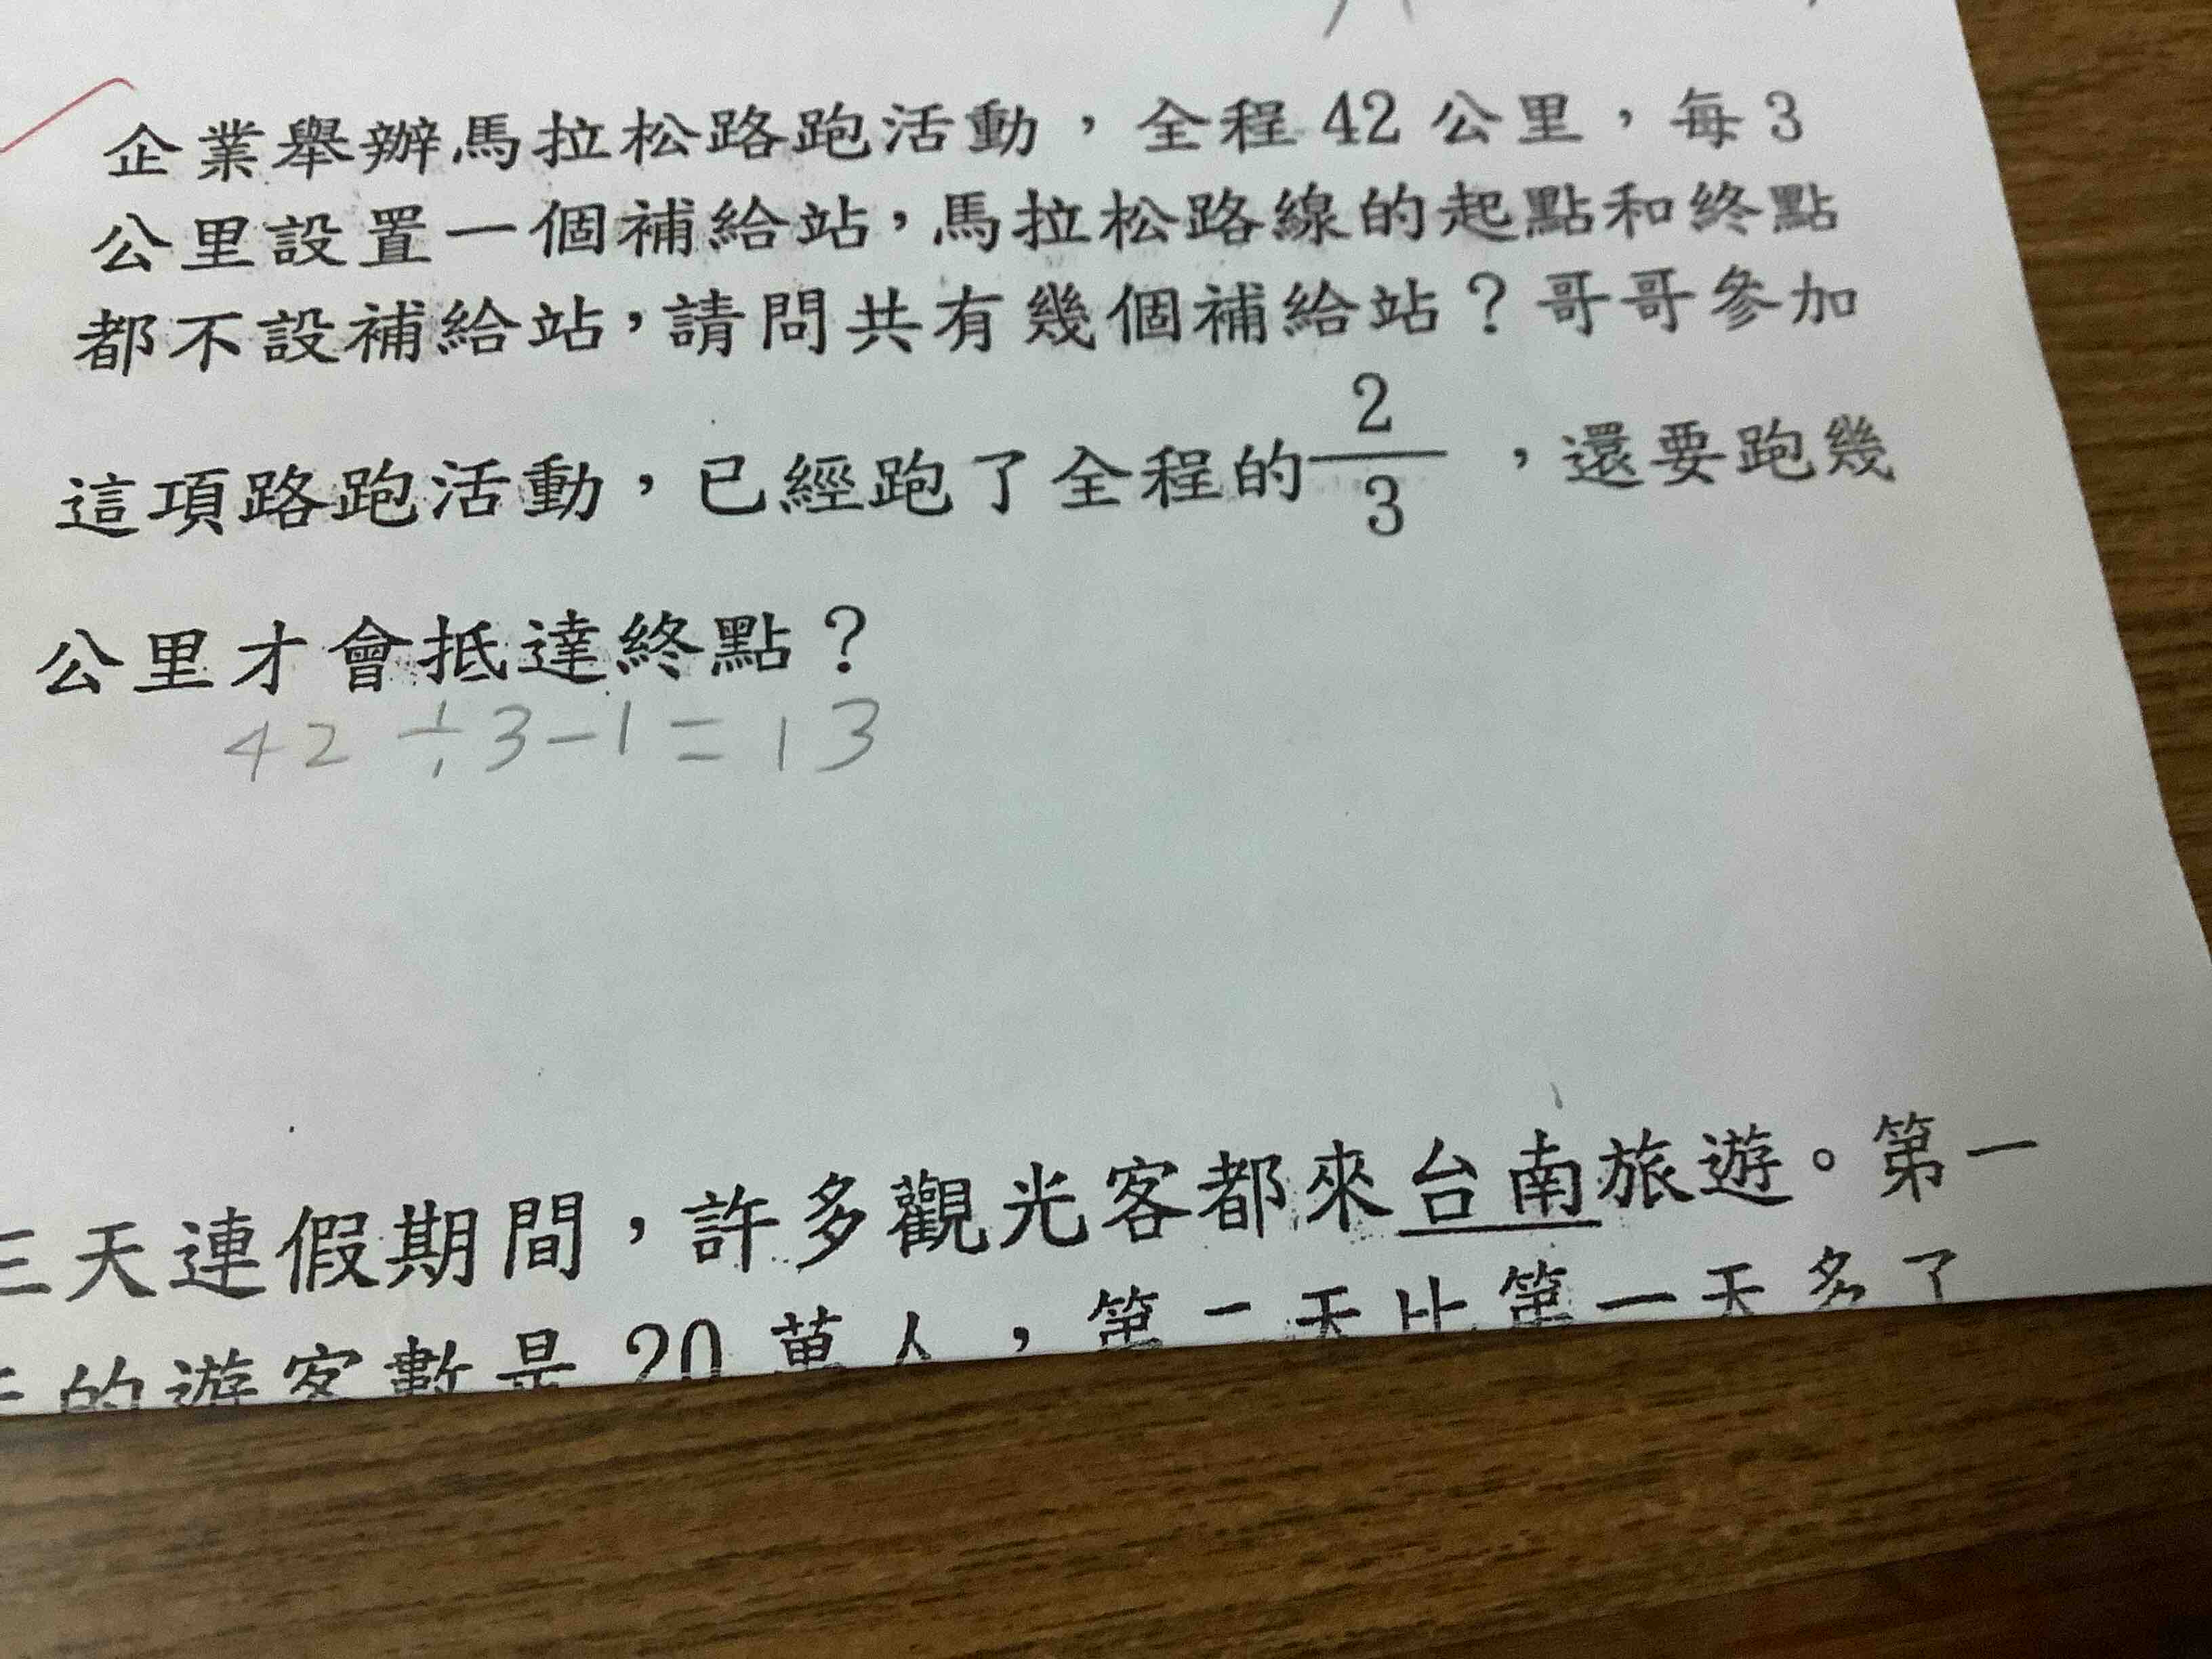 企業舉辦馬拉松路跑活動，全程 42 公里，每 3
公里設置一個補給站，馬拉松路線的起點和終點
都不設補給站，請問共有幾個補給站？哥哥參加
這項路跑活動，已經跑了全程的 2/3 ，還要跑幾
公里才會抵達終點？
42 ÷ 3 - 1 = 13
三天連假期間，許多觀光客都來台南旅遊。第一
的遊客數是 20 萬人，第二天比第一天多了